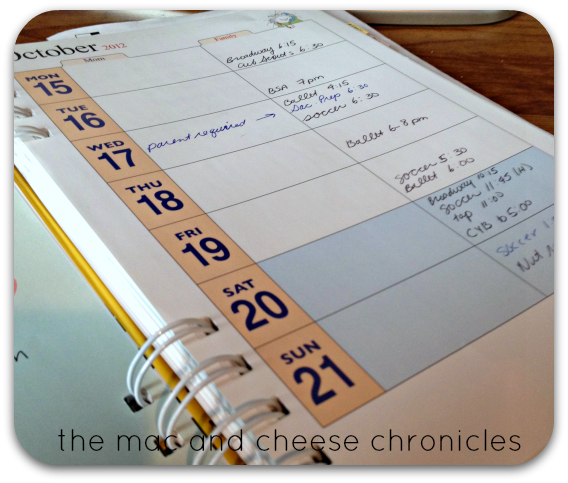 October 2012
Mom
Family
MON
15
Broadway 6:15
Cub Scouts 6:30
TUE
16
BSA 7pm
Ballet 4:15
Sac Prep 6:30
soccer 6:30
WED
17
parent required →
Ballet 6-8pm
THU
18
Soccer 5:30
Ballet 6:00
FRI
19
SAT
20
Broadway 10:15
Soccer 11:45 (H)
Tap 11:00
CYB 5:00
SUN
21
Soccer
Nut
the mac and cheese chronicles